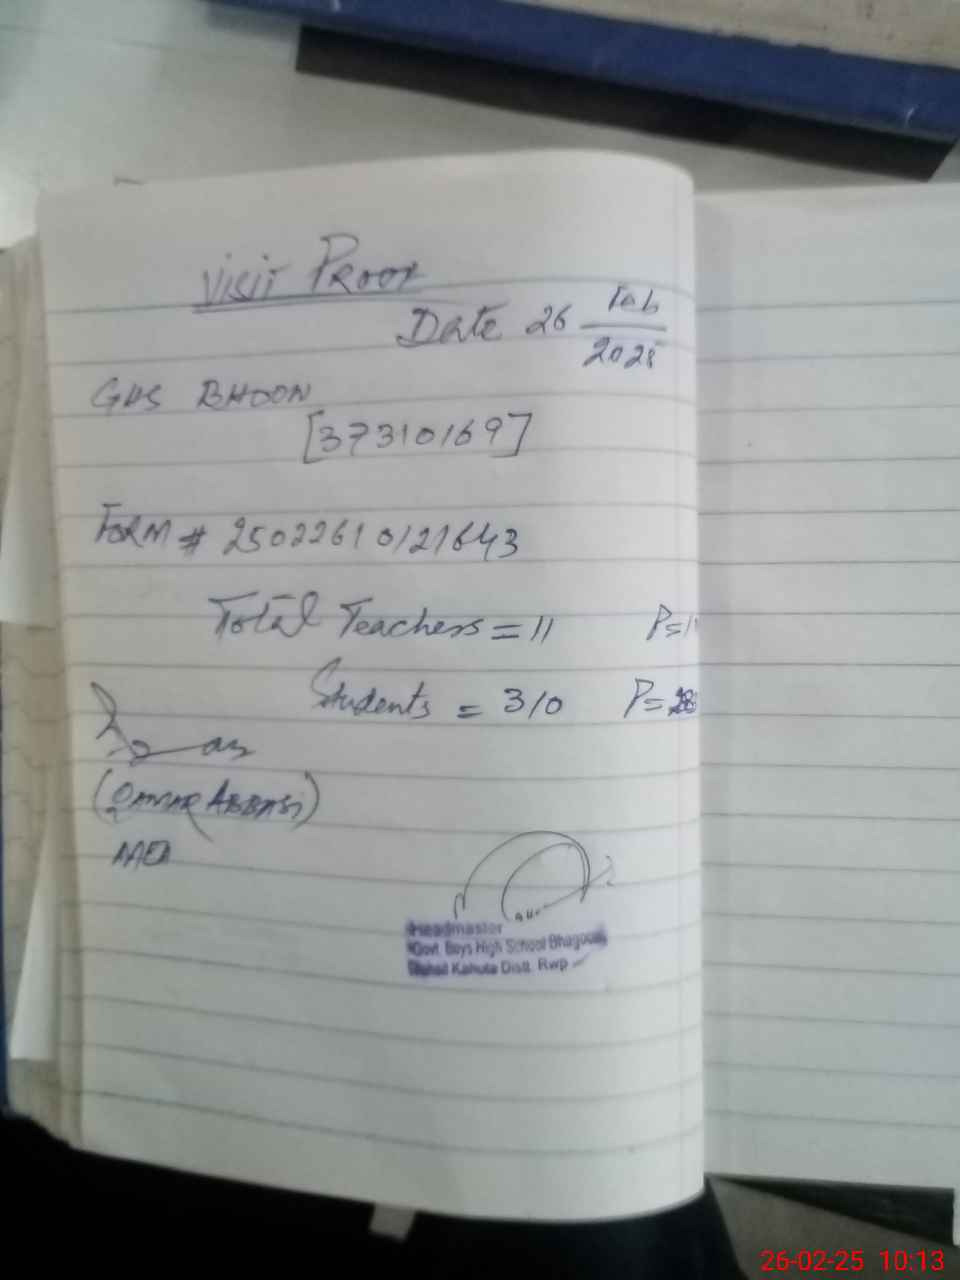 Visit Proof
Date 26 Feb
2025
GHS BHOON
[37310169]
FORM # 25022610121643
Total Teachers = 11 P=1
Students = 310 P=
(QAMAR ABBASI)
Headmaster
Govt. Boys High School Bhagoon
Kahuta Distt. Rwp
26-02-25 10:13